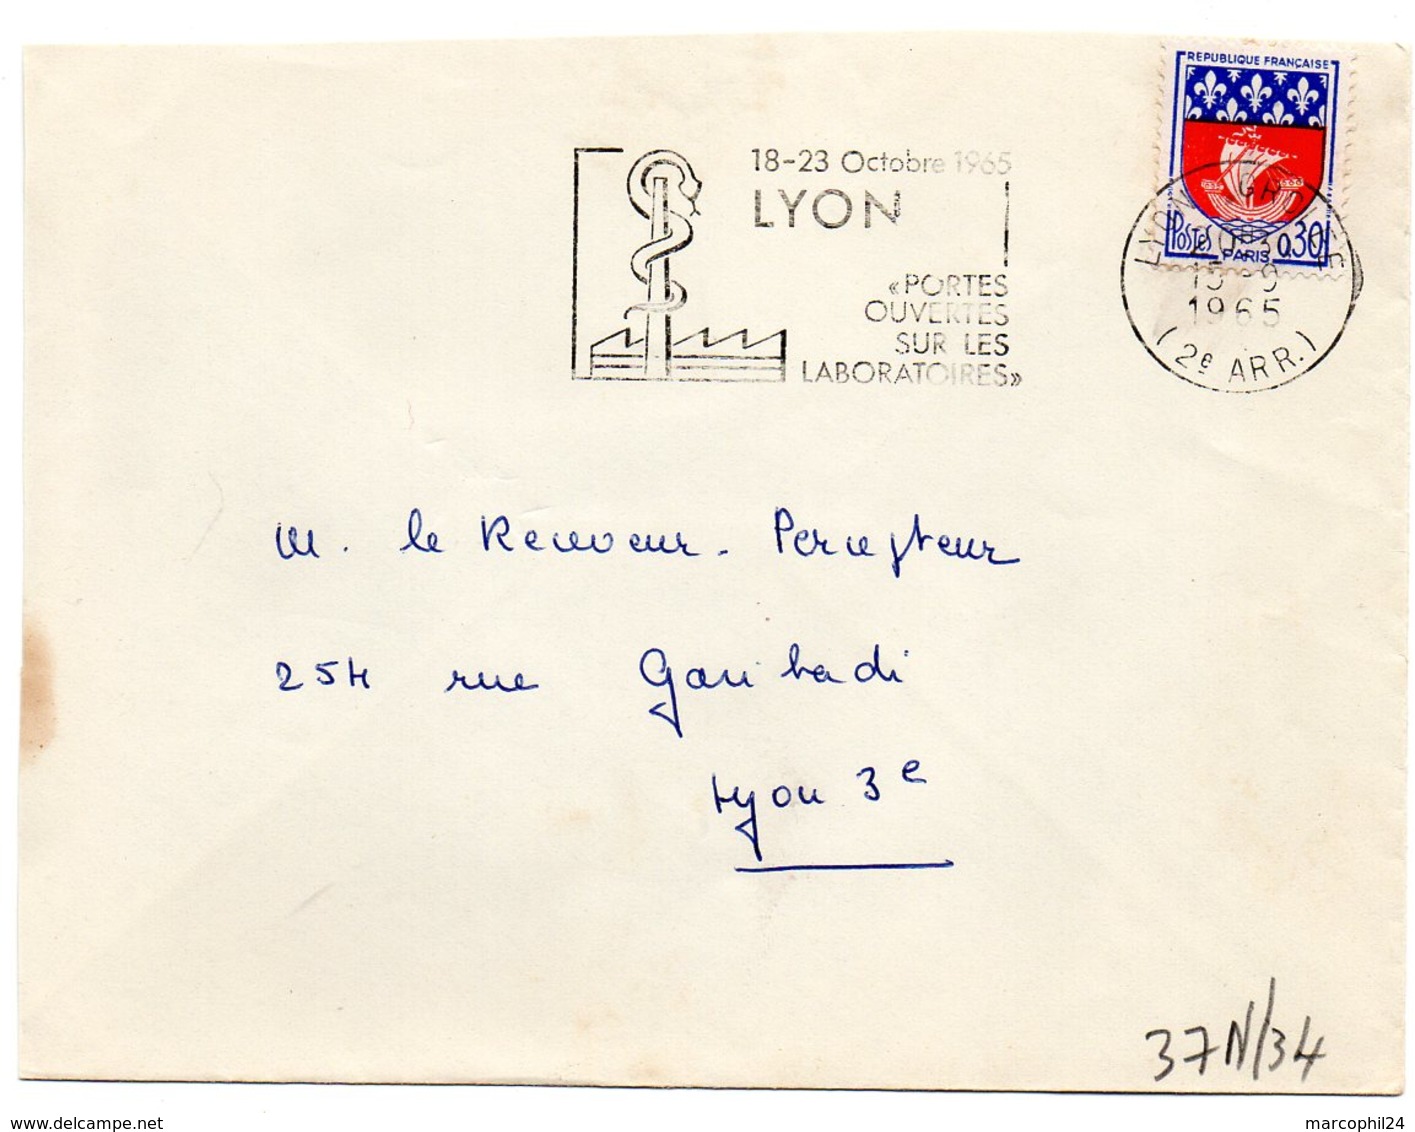 REPUBLIQUE FRANÇAISE
Postes PARIS 0,30
18-23 Octobre 1965
LYON
«PORTES
OUVERTES
SUR LES
LABORATOIRES»
LYON GARE
15-9
1965
(2e ARR.)
M. le Receveur-Percepteur
254 rue Garibaldi
Lyon 3e
37N/34
www.delcampe.net
marcophil24